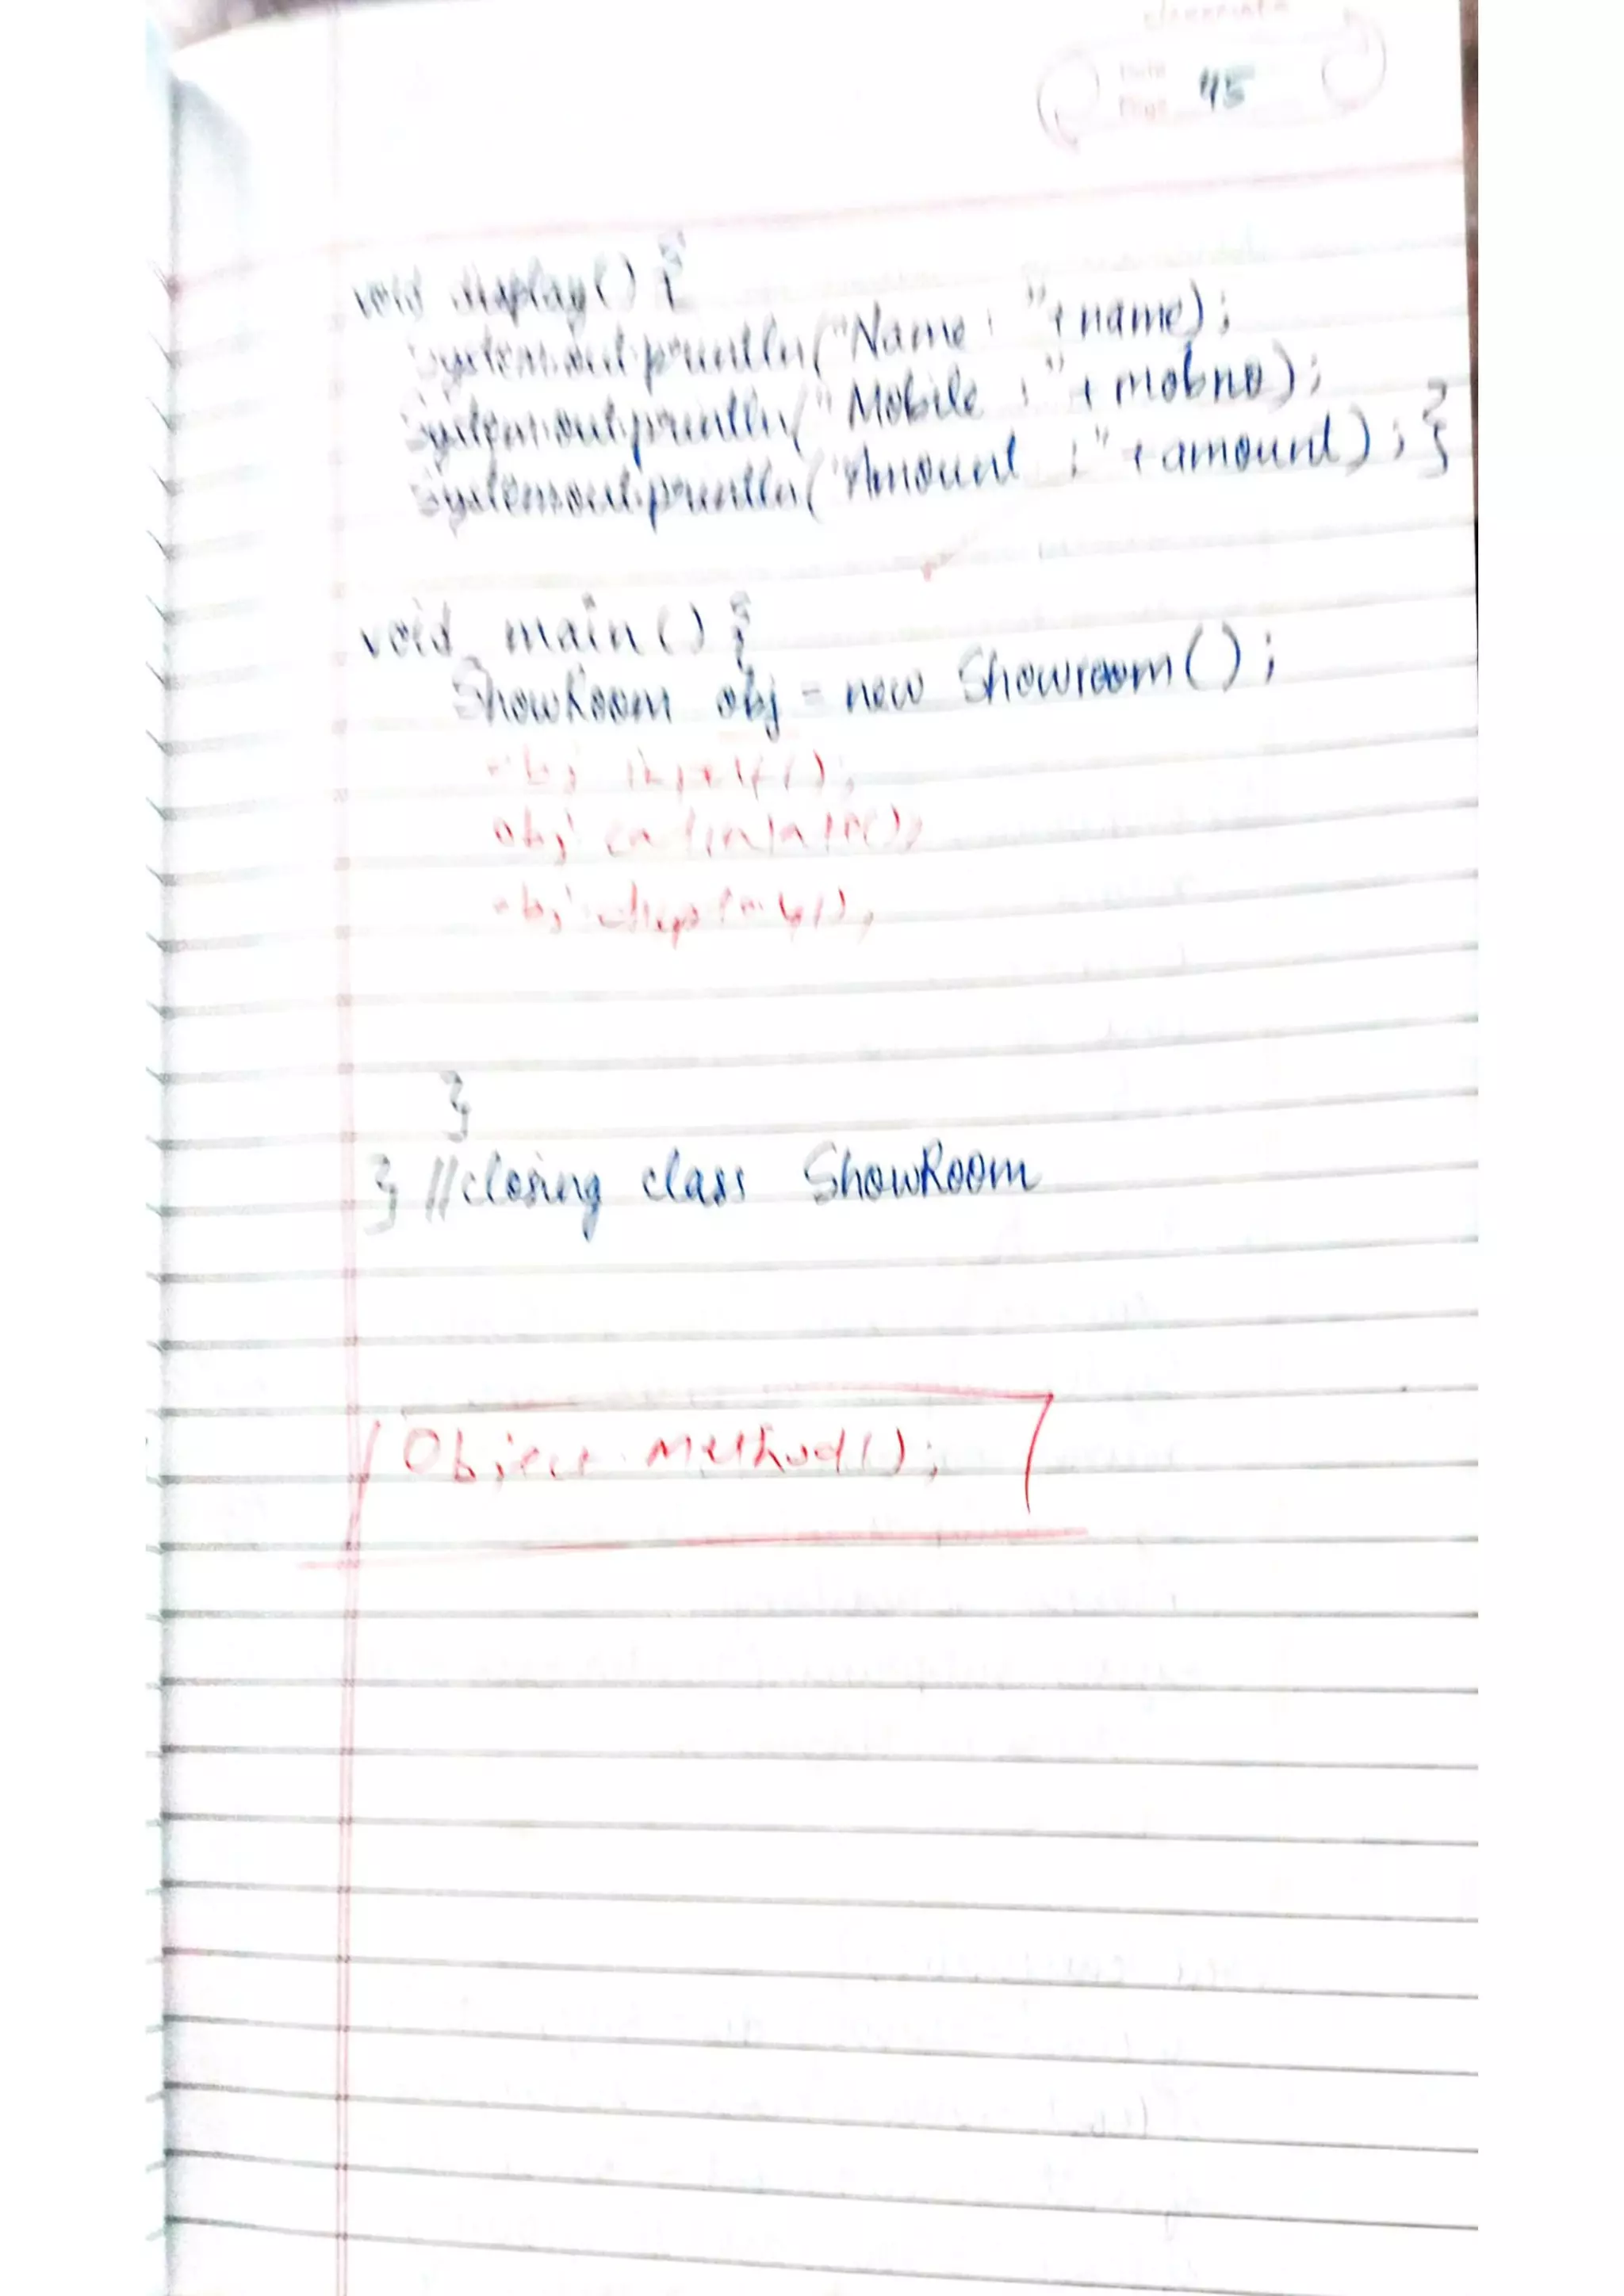 classmate
Date
Page 45
void display() {
System.out.println("Name : "+name);
System.out.println("Mobile : "+mobno);
System.out.println("Amount : "+amount); }
void main() {
ShowRoom obj = new Showroom();
obj.input();
obj.calculate();
obj.display();
}
} //closing class ShowRoom
Object.Method();